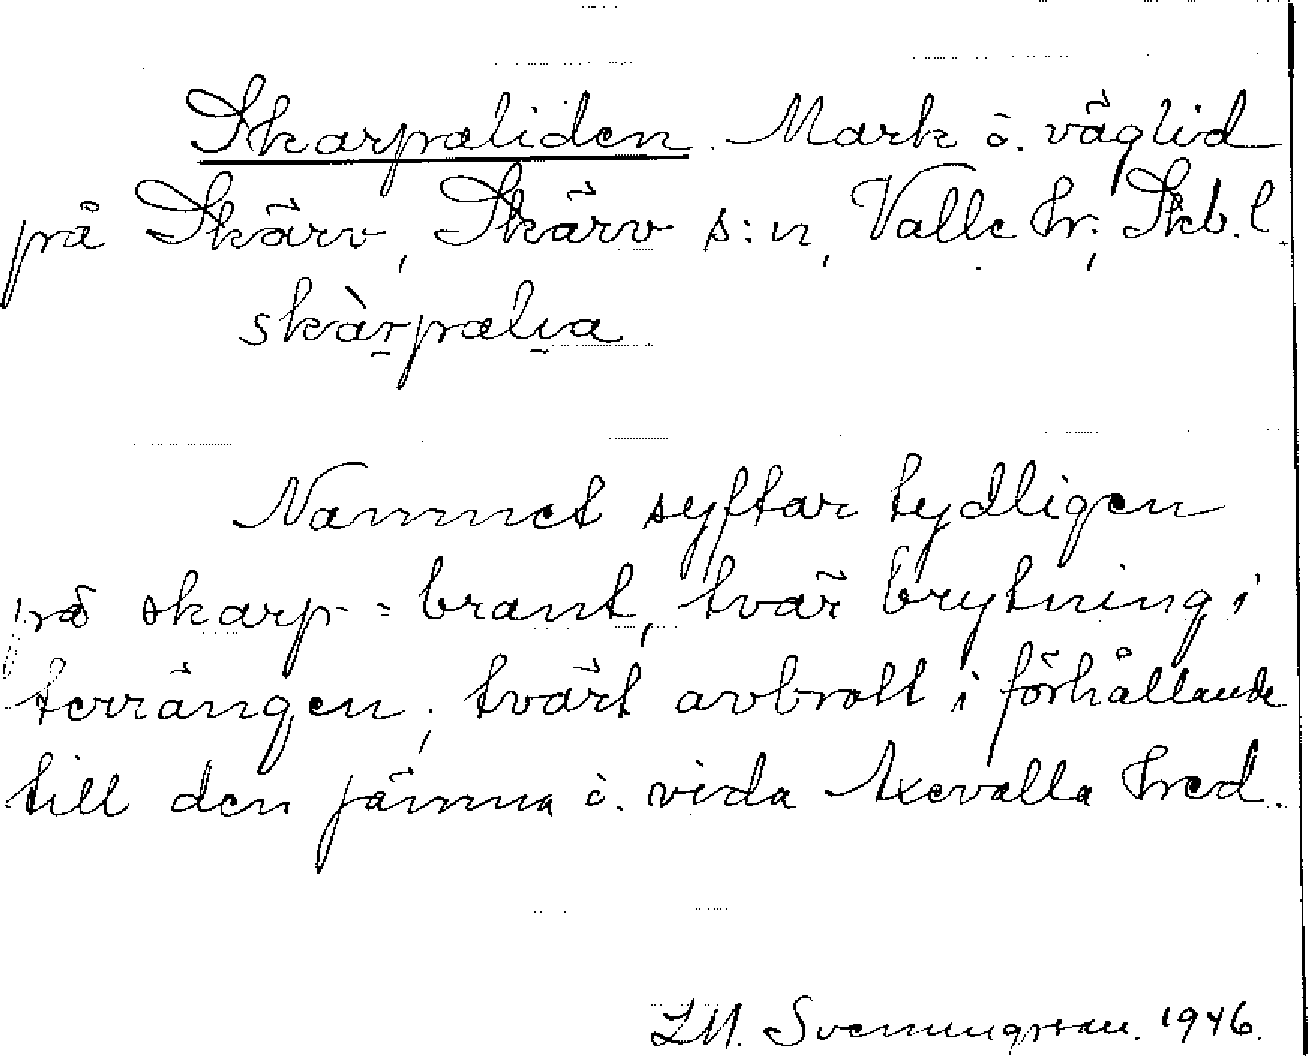 Skarpaliden. Mark o. väglid
på Skärv, Skärv s:n, Valle hr; Skb. l.
skàrpalia
Namnet syftar tydligen
på skarp = brant, tvär brytning i
terrängen; tvärt avbrott i förhållande
till den jämna o. vida Axevalla hed.
L.M. Svenungsson. 1946.